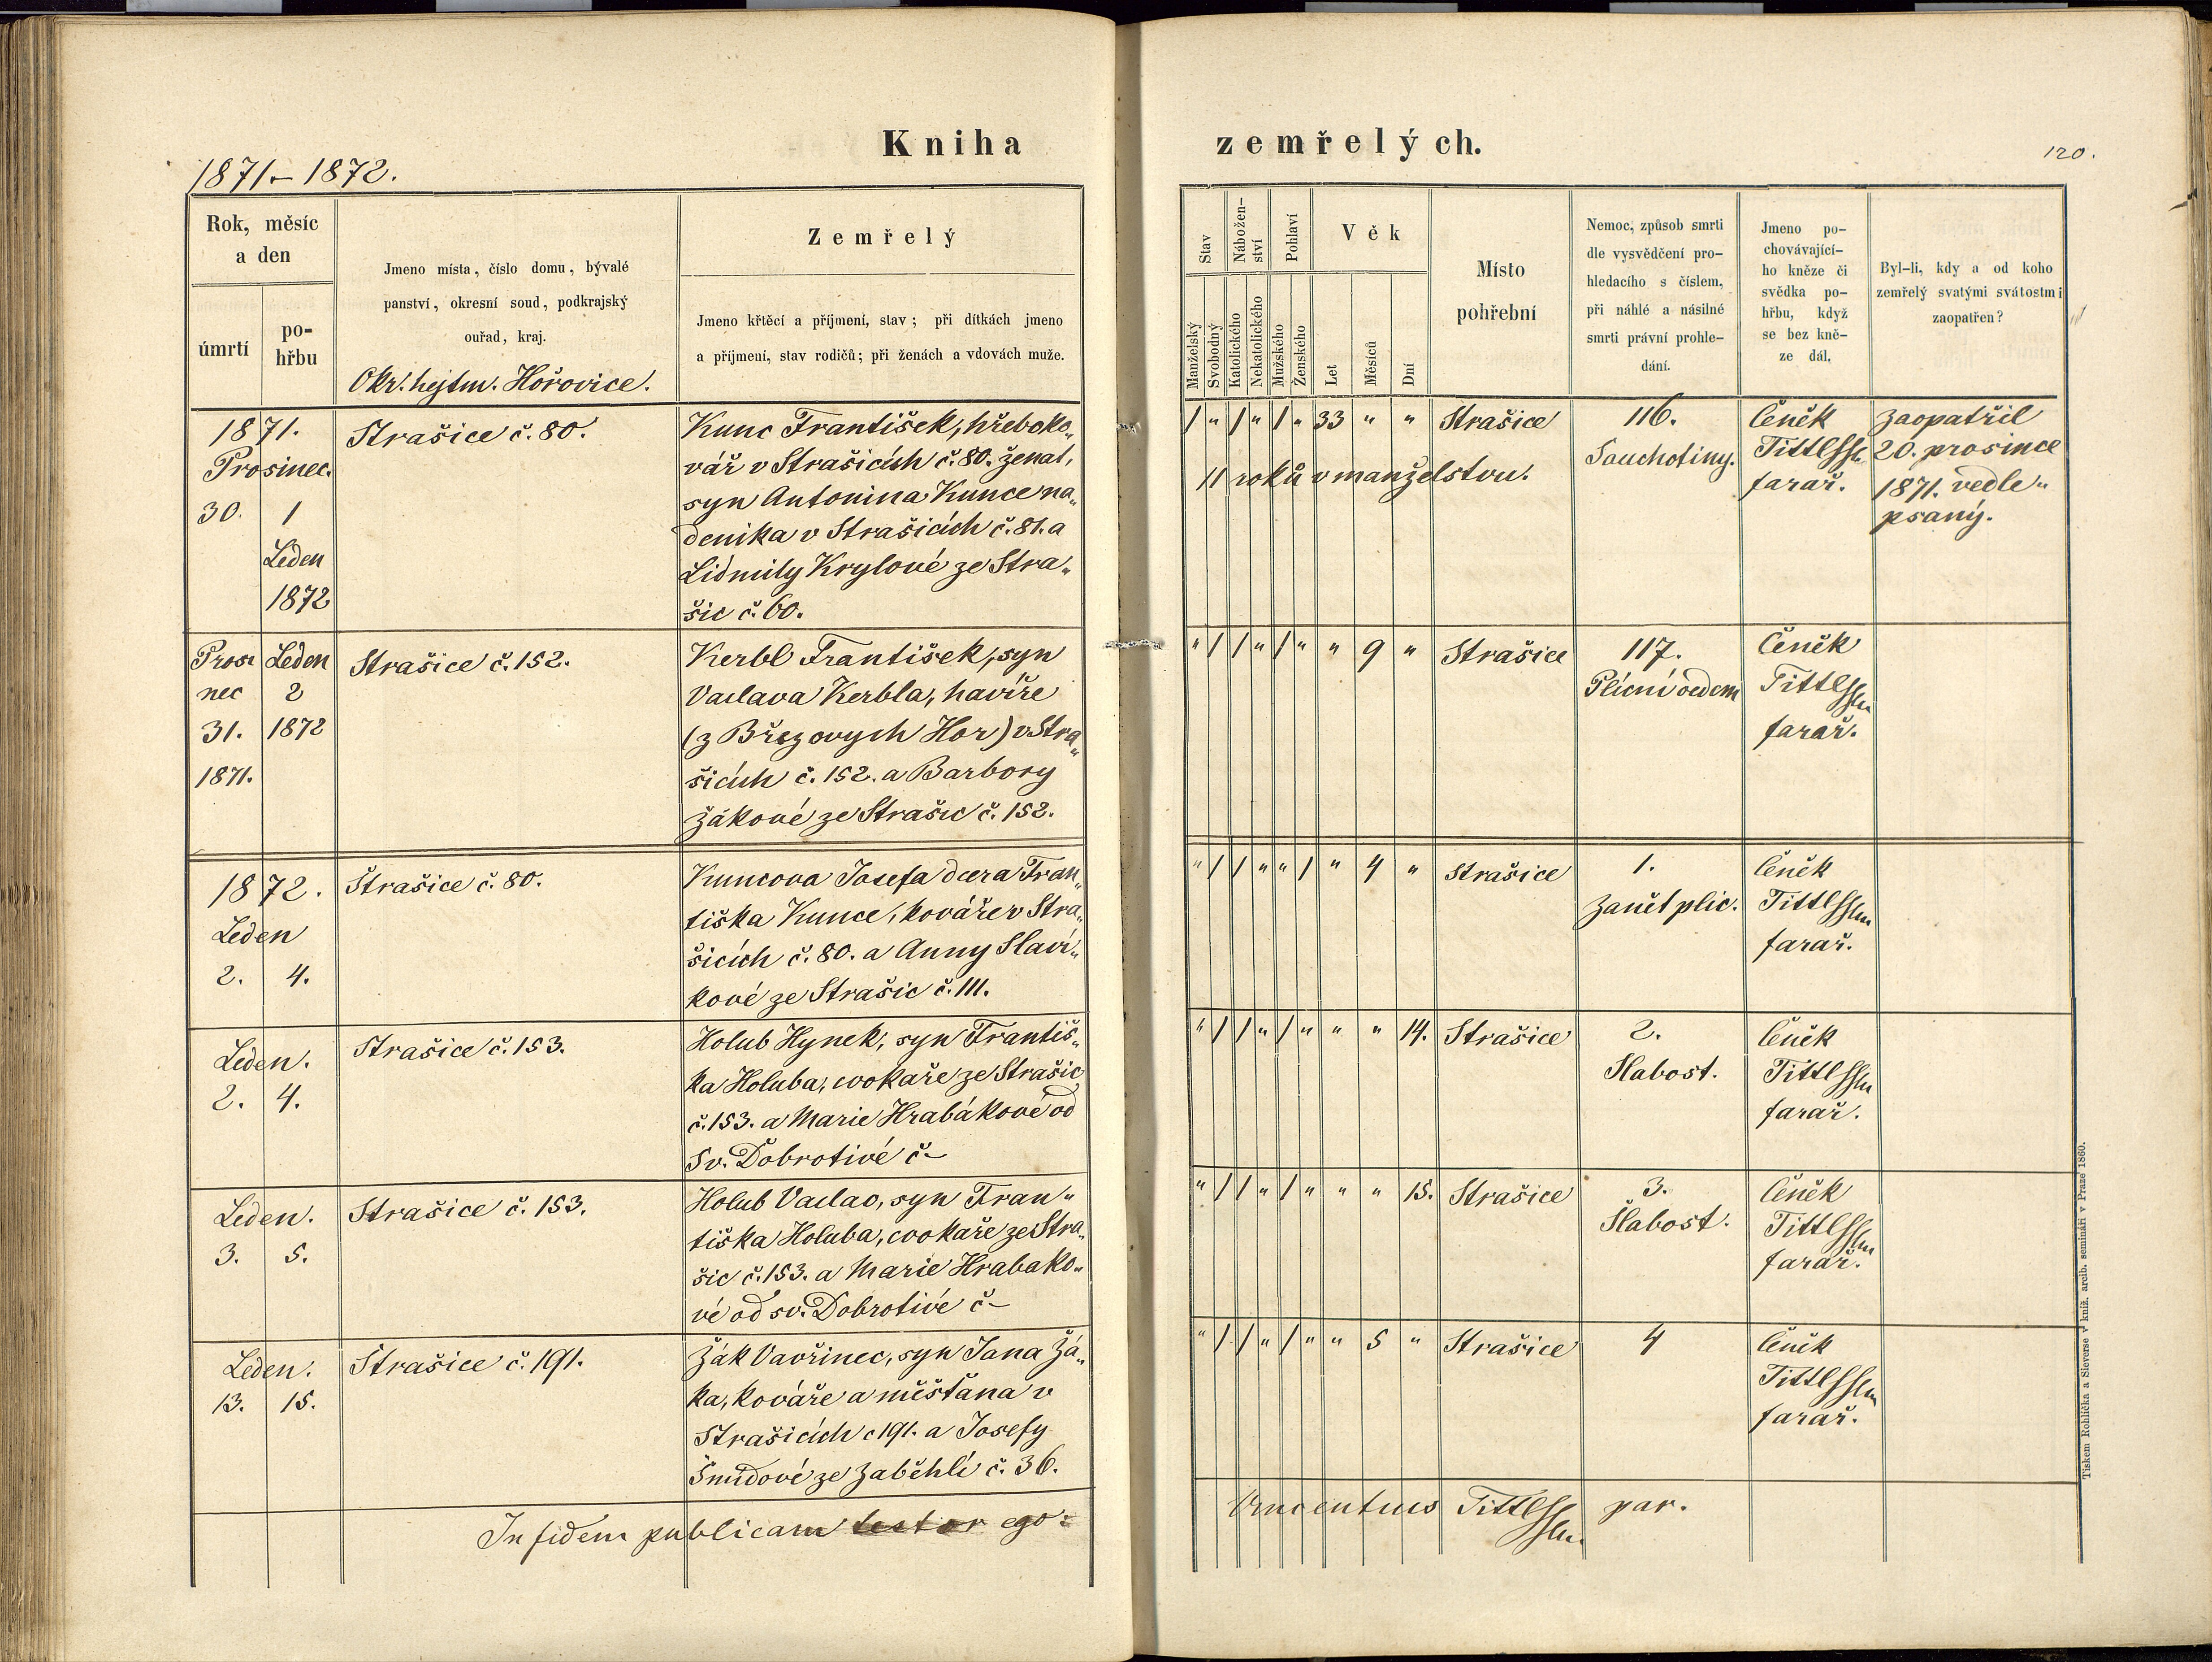 Kniha zemřelých.
1871–1872.
120.
Rok, měsíc
a den
úmrtí
po-
hřbu
Jmeno místa, číslo domu, bývalé
panství, okresní soud, podkrajský
ouřad, kraj.
Okr. hejtm. Hořovice.
Zemřelý
Jmeno křtěcí a příjmení, stav; při dítkách jmeno
a příjmení, stav rodičů; při ženách a vdovách muže.
Stav
Manželský
Svobodný
Nábožen-
ství
Katolického
Nekatolického
Pohlaví
Mužského
Ženského
Věk
Let
Měsíců
Dní
Místo
pohřební
Nemoc, způsob smrti
dle vysvědčení pro-
hledacího s číslem,
při náhlé a násilné
smrti právní prohle-
dání.
Jmeno po-
chovávající-
ho kněze či
svědka po-
hřbu, když
se bez kně-
ze dál.
Byl-li, kdy a od koho
zemřelý svatými svátostmi
zaopatřen?
1871.
Prosinec.
30. 1
Leden
1872
Strašice č. 80.
Kunc František, hřeboko„
vář v Strašicích č. 80. ženat,
syn Antonina Kunce na„
denika v Strašicích č. 81. a
Lidmily Krylové ze Stra„
šic č. 60.
1 " 1 " 1 " 33 " " Strašice
11 roků v manželstvu.
116.
Souchotiny.
Čeněk
Tittlssln
farář.
zaopatřil
20. prosince
1871. vedle„
psaný.
Prosi Leden
nec 2
31. 1872
1871.
Strašice č. 152.
Kerbl František, syn
Vaclava Kerbla, havíře
(z Březových Hor) v Stra„
šicích č. 152. a Barbory
Žákové ze Strašic č. 152.
" 1 1 " 1 " " 9 " Strašice
117.
Plícní oedem
Čeněk
Tittlssln
farář.
1872.
Leden
2. 4.
Strašice č. 80.
Kuncova Josefa dcera Fran„
tiška Kunce, kováře v Stra„
šicích č. 80. a Anny Slaví„
kové ze Strašic č. 111.
" 1 1 " " 1 " 4 " Strašice
1.
Zanět plic.
Čeněk
Tittlssln
farář.
Leden.
2. 4.
Strašice č. 153.
Holub Hynek, syn Františ„
ka Holuba, cvokaře ze Strašic
č. 153. a Marie Hrabákové od
Sv. Dobrotivé č –
" 1 1 " 1 " " " 14. Strašice
2.
Slabost.
Čeněk
Tittlssln
farář.
Leden.
3. 5.
Strašice č. 153.
Holub Vaclav, syn Fran„
tiška Holuba, cvokaře ze Stra„
šic č. 153. a Marie Hrabako„
vé od sv. Dobrotivé č –
" 1 1 " 1 " " " 15. Strašice
3.
Slabost.
Čeněk
Tittlssln
farář.
Leden.
13. 15.
Strašice č. 191.
Žák Vavřinec, syn Jana Žá„
ka, kováře a měšťana v
Strašicích č 191. a Josefy
Šmídové ze Zaběhlí č. 36.
" 1 1 " 1 " " 5 " Strašice
4
Čeněk
Tittlssln
farář.
In fidem publicam testor ego:
Vincentius Tittlssln. par.
Tiskem Rohlíčka a Sieverse v kníž. arcib. semináři v Praze 1860.